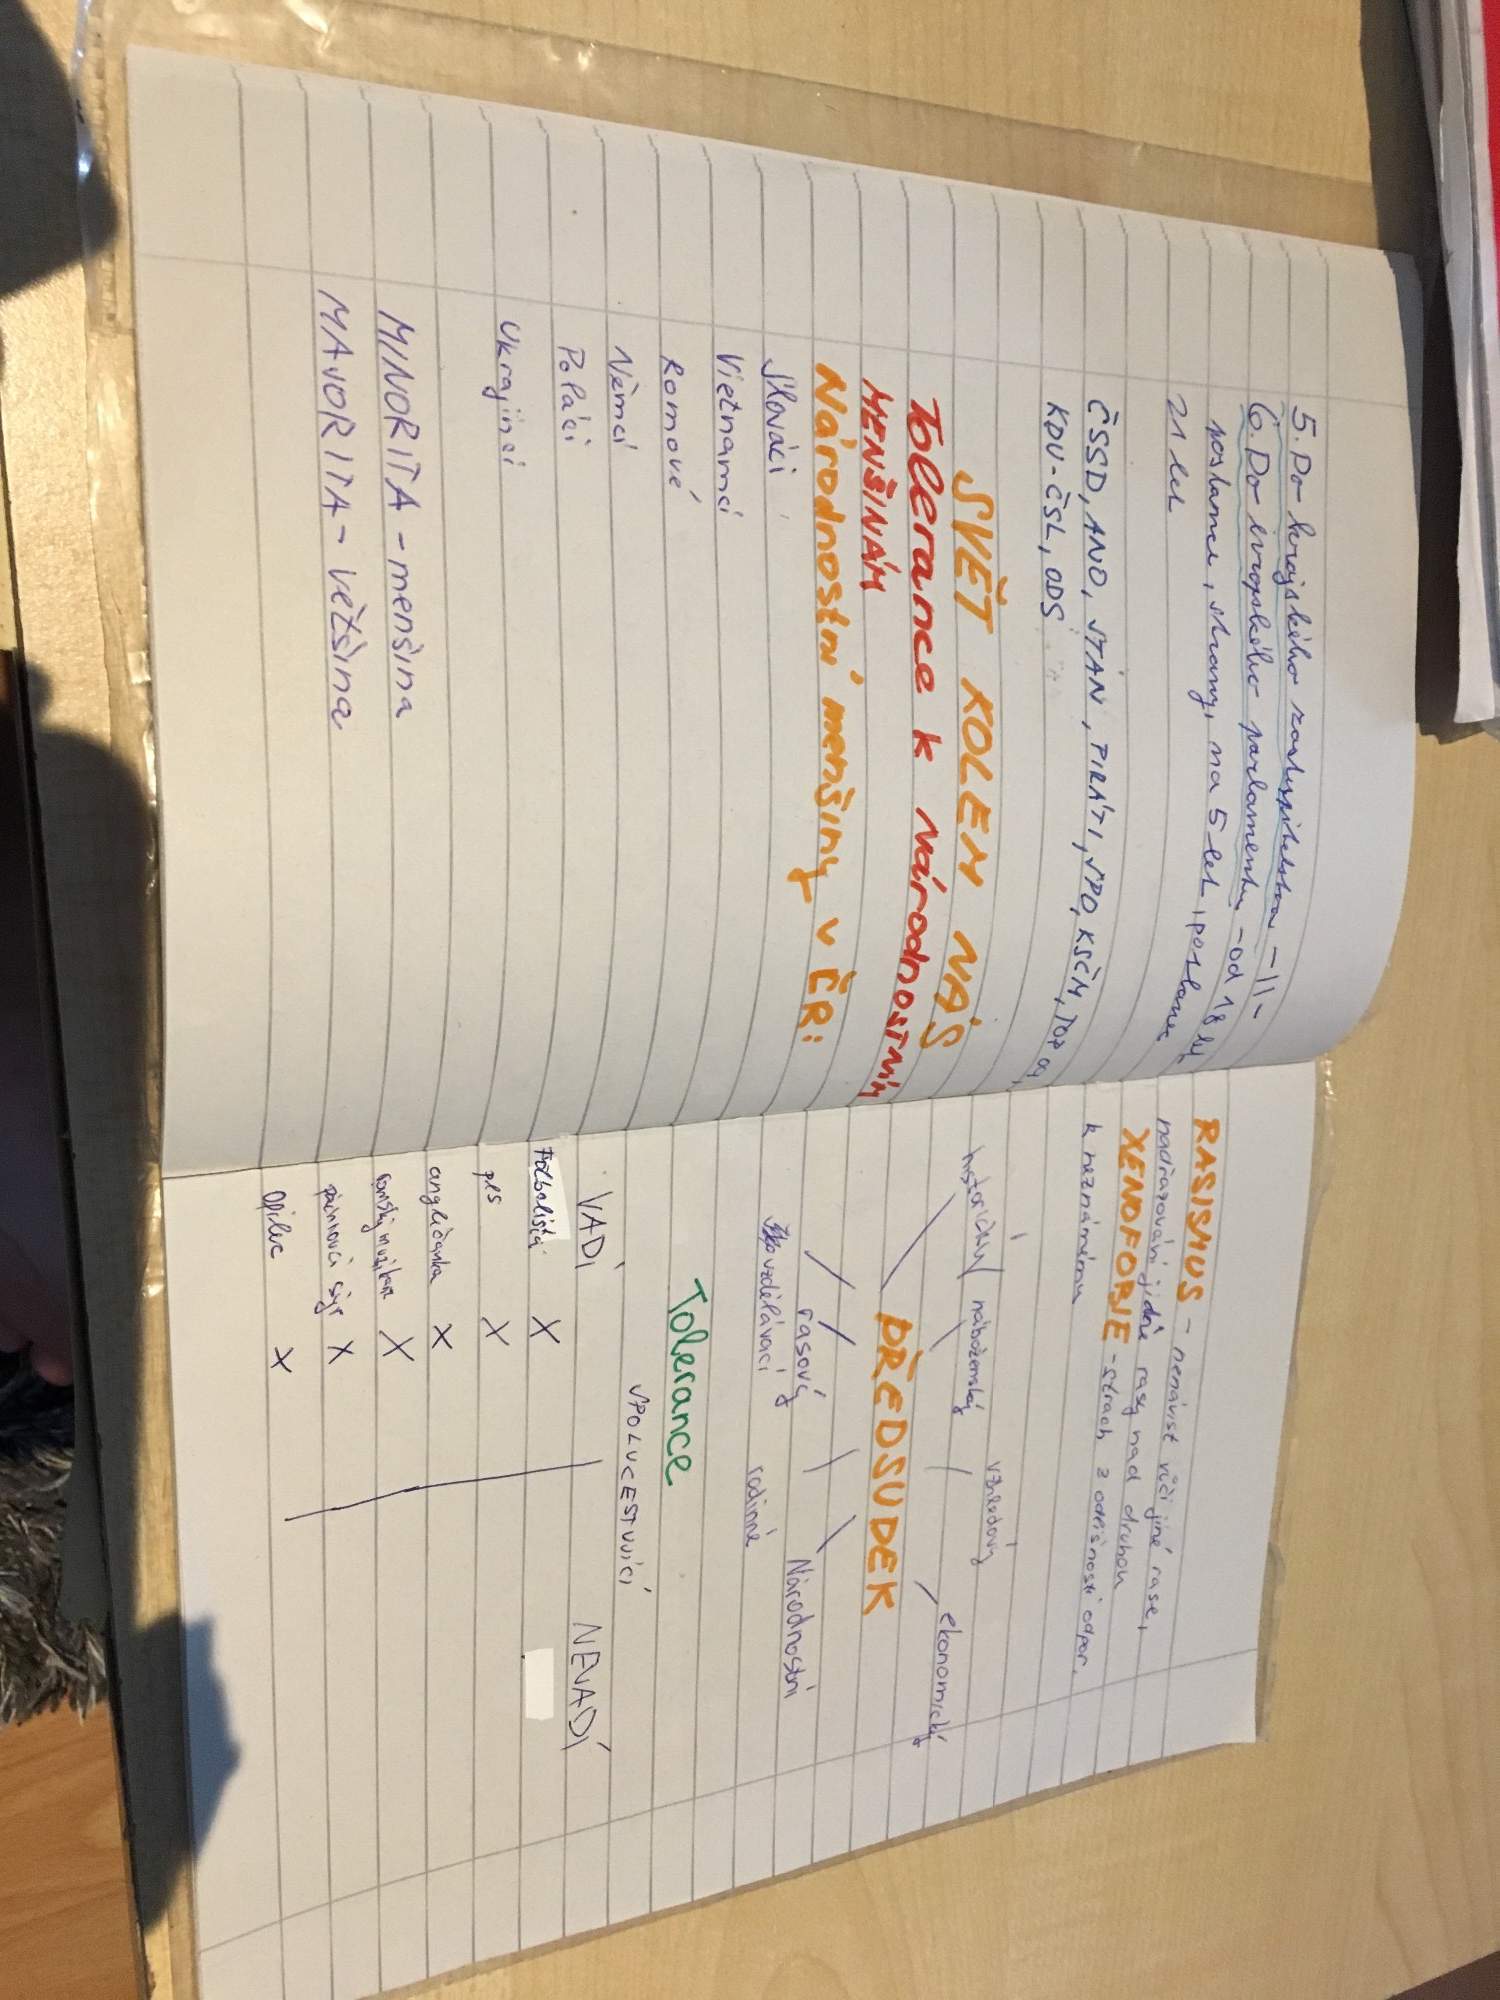 5. Do krajského zastupitelstva -11-
6. Do evropského parlamentu - od 18 let
poslance, strany, na 5 let, poslanec
21 let
ČSSD, ANO, STAN, PIRÁTI, SPO, KSČM, TOP 09,
KDU-ČSL, ODS
SVĚT KOLEM NÁS
Tolerance k národnostním
MENŠINÁM
Národnostní menšiny v ČR:
Slováci
Vietnamci
Romové
Němci
Poláci
Ukrajinci
MINORITA - menšina
MAJORITA - věžšina
RASISMUS - nenávist vůči jiné rase,
nadřazování jidné rasy nad druhou
XENOFOBJE - strach z odlišnosti odpor.
k neznámému
vzhledový
historický náboženský
ekonomický
PŘEDSUDEK
rasový
Národnostní
vzdělávací
rodinné
Tolerance
SPOLUCESTUJÍCÍ
VADÍ NEVADÍ
Fotbalista X
pes X
angličanka X
romský muzikant X
plísňový sýr X
Opilec X